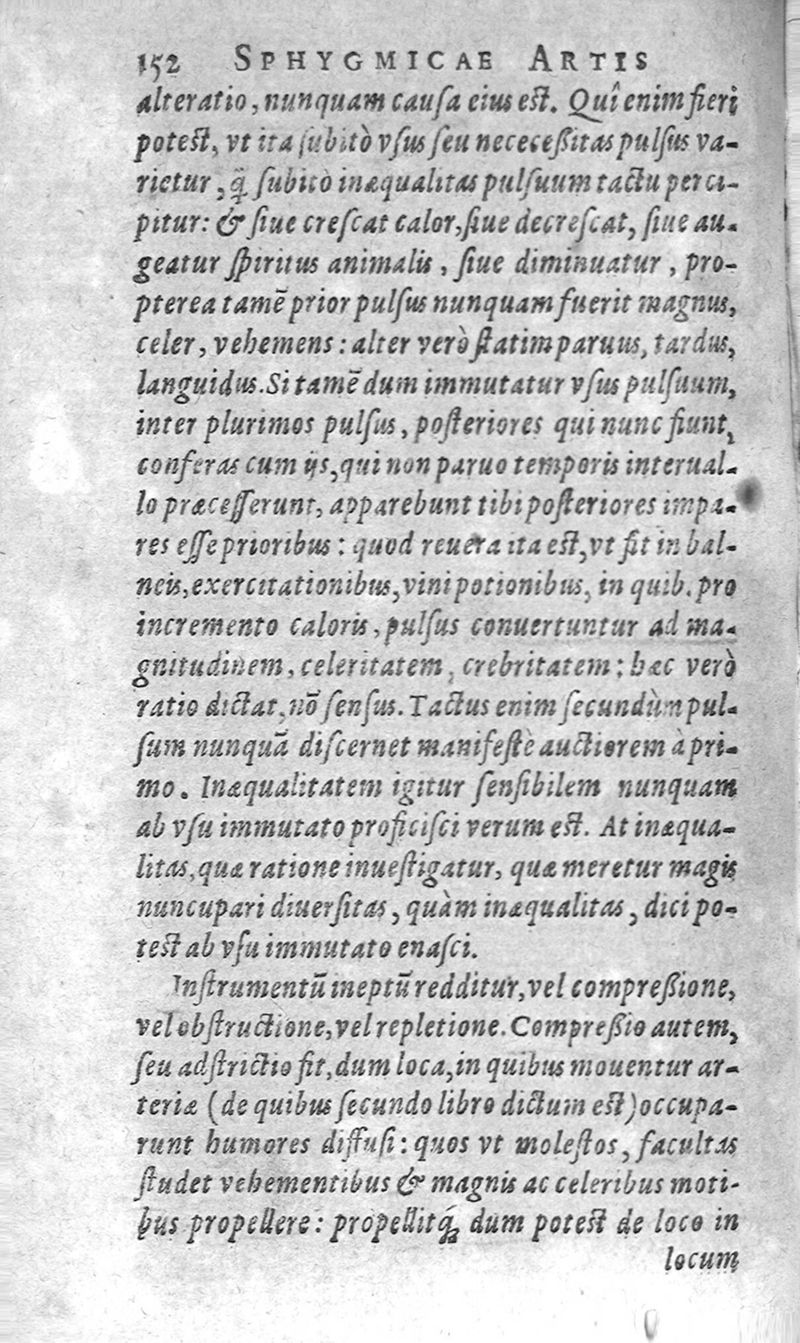 152 SPHYGMICAE ARTIS
alteratio, nunquam cauſa eius eſt. Quî enim fieri
poteſt, vt ita ſubitò vſus ſeu nececeßitas pulſus va-
rietur, q̃ ſubitò inæqualitas pulſuum tactu perci-
pitur: & ſiue creſcat calor, ſiue decreſcat, ſiue au-
geatur ſpiritus animalis, ſiue diminuatur, pro-
pterea tamẽ prior pulſus nunquam fuerit magnus,
celer, vehemens: alter verò ſtatim paruus, tardus,
languidus. Si tamẽ dum immutatur vſus pulſuum,
inter plurimos pulſus, poſteriores qui nunc fiunt,
conferas cum ijs, qui non paruo temporis interual-
lo præceſſerunt, apparebunt tibi poſteriores impa-
res eſſe prioribus: quod reuera ita eſt, vt fit in bal-
neis, exercitationibus, vini potionibus, in quib. pro
incremento caloris, pulſus conuertuntur ad ma-
gnitudinem, celeritatem, crebritatem: hæc verò
ratio dictat, nõ ſenſus. Tactus enim ſecundùm pul-
ſum nunquã diſcernet manifeſtè auctiorem à pri-
mo. Inæqualitatem igitur ſenſibilem nunquam
ab vſu immutato proficiſci verum eſt. At inæqua-
litas, quæ ratione inueſtigatur, quæ meretur magis
nuncupari diuerſitas, quàm inæqualitas, dici po-
teſt ab vſu immutato enaſci.
Inſtrumentũ ineptũ redditur, vel compreßione,
vel obſtructione, vel repletione. Compreßio autem,
ſeu adſtrictio fit, dum loca, in quibus mouentur ar-
teriæ (de quibus ſecundo libro dictum eſt) occupa-
runt humores diffuſi: quos vt moleſtos, facultas
ſtudet vehementibus & magnis ac celeribus moti-
bus propellere: propellitq́; dum poteſt de loco in
locum